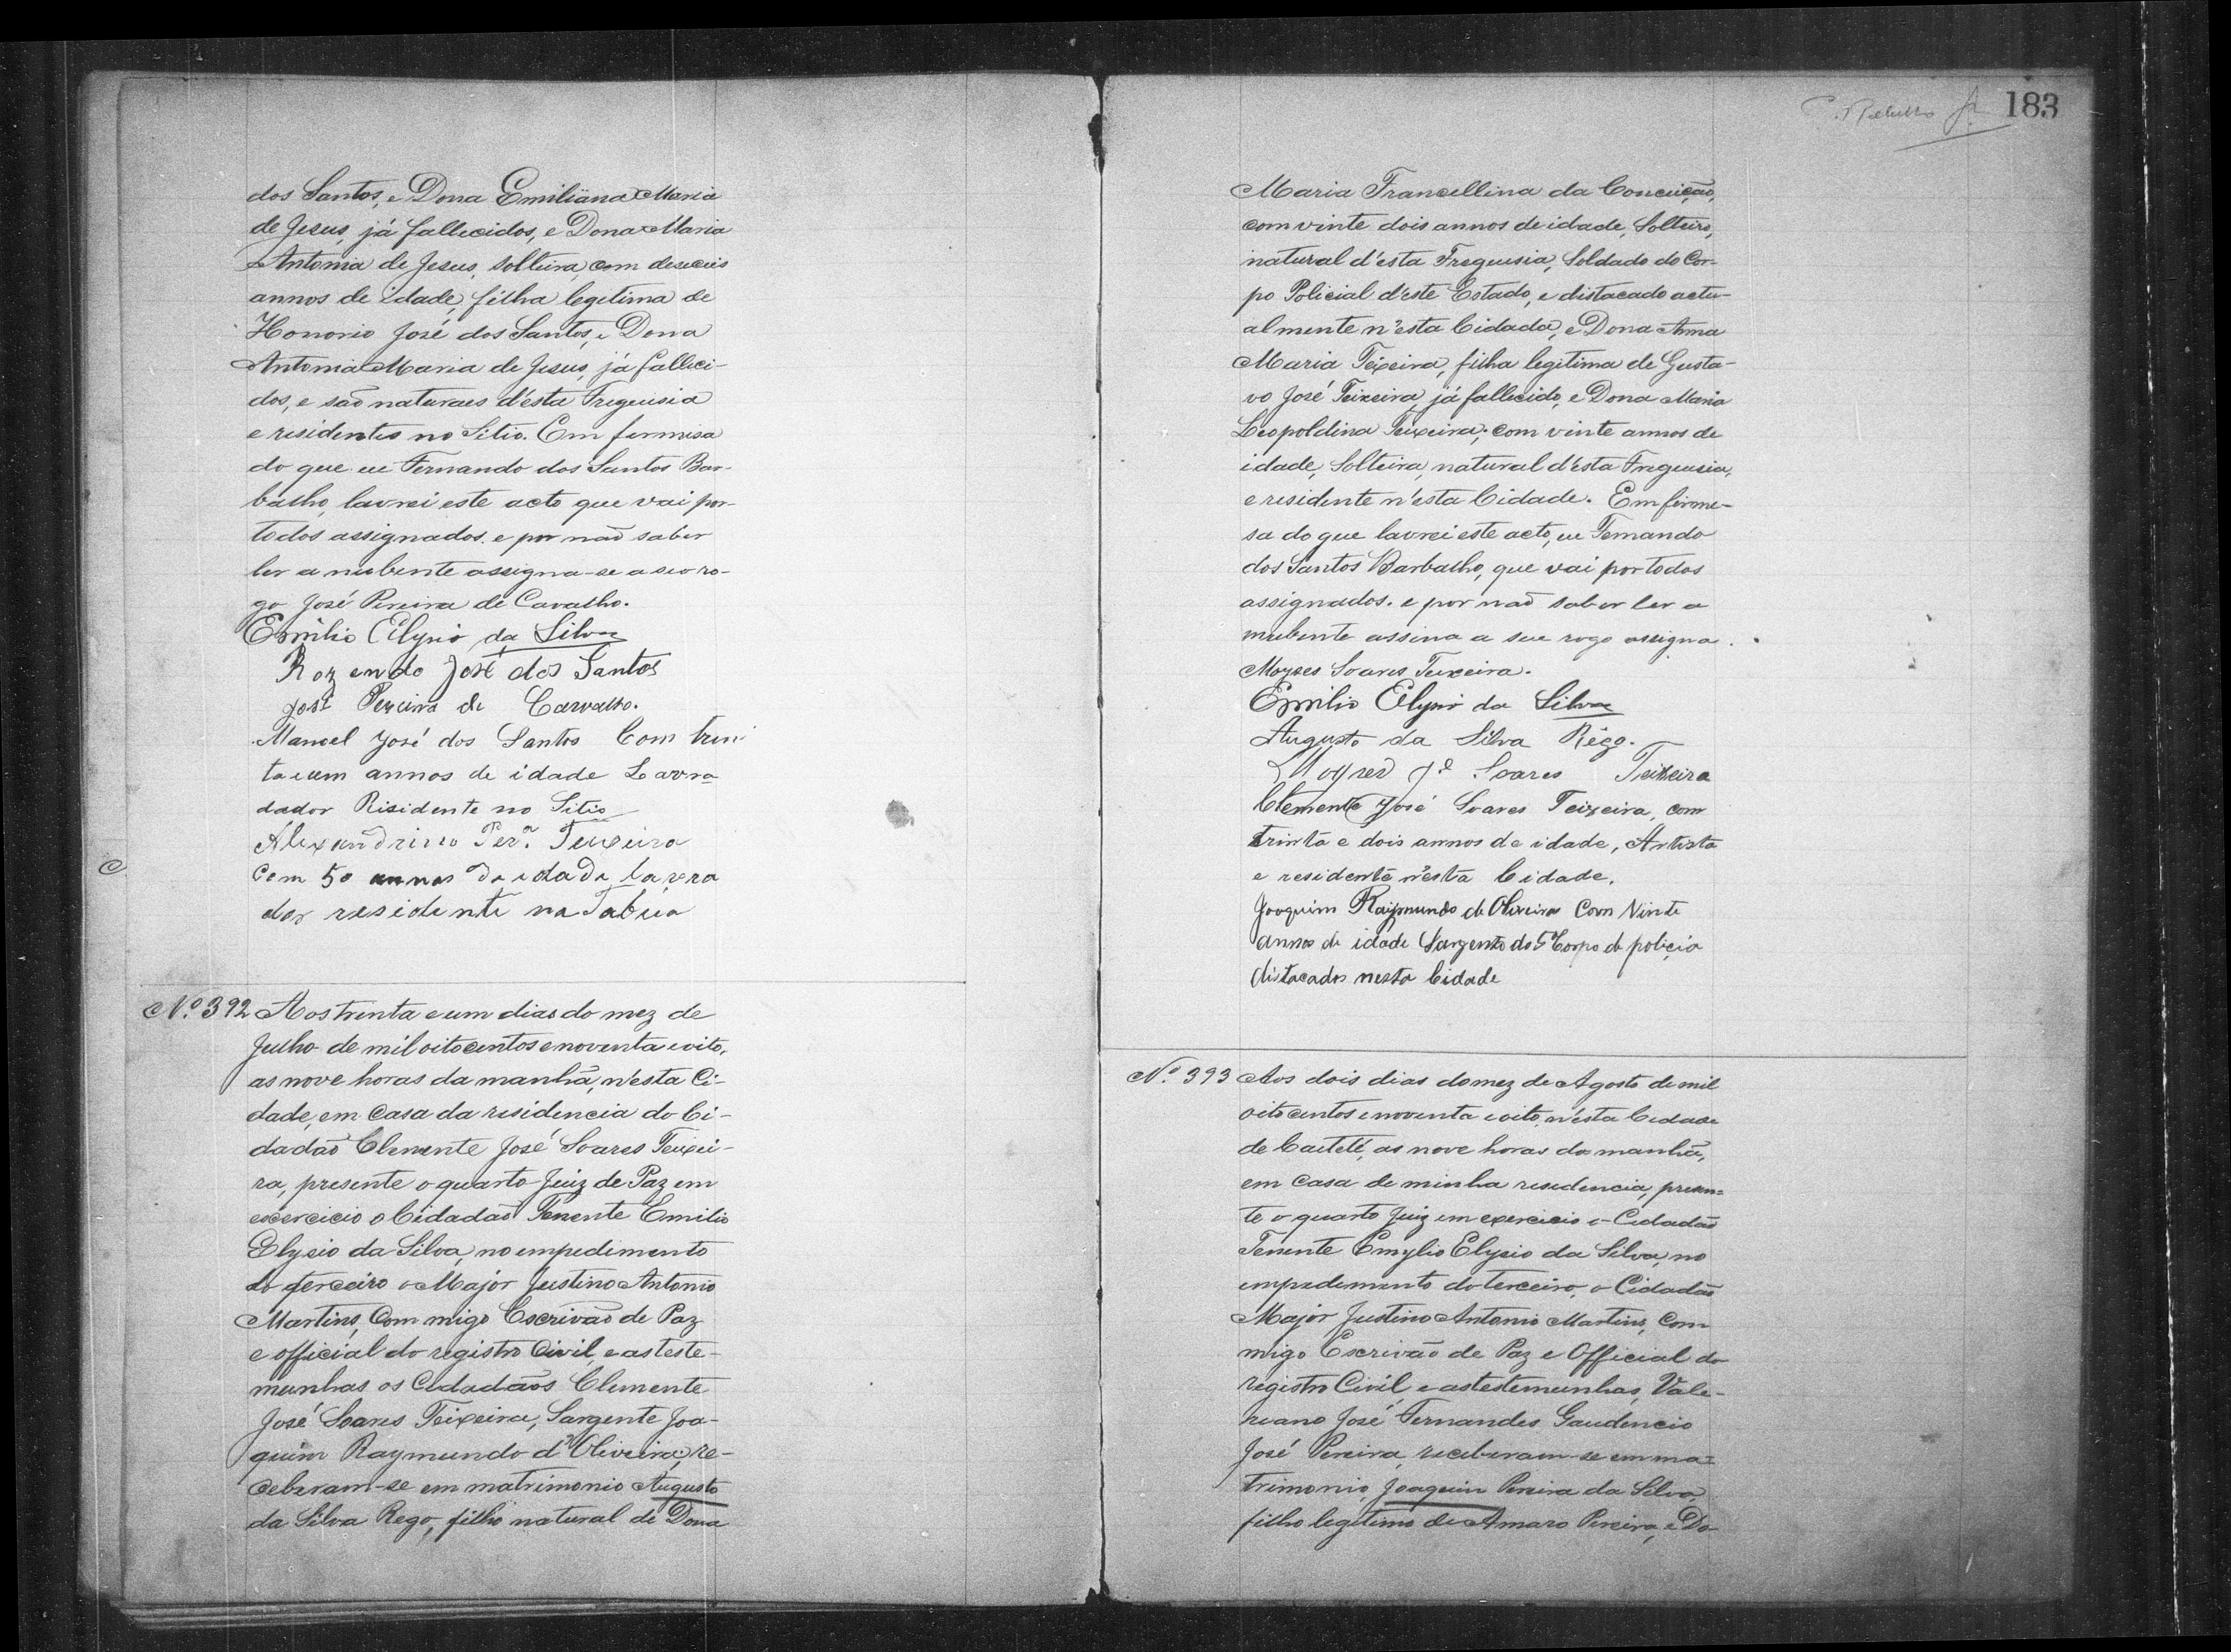 dos Santos, e Dona Emiliana Maria
de Jesus, já fallecidos, e Dona Maria
Antonia de Jesus, solteira, com deseceis
annos de idade, filha legitima de
Honorio José dos Santos, e Dona
Antonia Maria de Jesus, já falleci-
dos, e saõ naturaes d'esta Freguisia
e residentes no Sitio. Em firmesa
do que eu Fernando dos Santos Bar-
balho, lavrei este acto que vai por
todos assignados. e por naõ saber
ler a nubente assigna-se a seo ro-
go José Pereira de Cavalho.
Emilio Elysio da Silva
Rozendo José dos Santos
José Pereira de Carvalho.
Manoel José dos Santos Com trin
ta e um annos de idade Lavra
dador Risidente no Sitio
Alexandrino Perª. Teixeira
Com 50 annos de idade lavra
dor residente na Tabua
Nº. 392 Aos trinta e um dias do mez de
Julho de mil oitocentos e noventa e oito,
as nove horas da manhã, n'esta Ci-
dade, em Casa da residencia do Ci-
dadaõ Clemente José Soares Teixei-
ra, presente o quarto Juiz de Paz em
excercicio o Cidadaõ Tenente Emilio
Elysio da Silva, no empedimento
do terceiro o Major Justino Antonio
Martins, Com migo Escrivaõ de Paz
e official do registro Civil, e as teste-
munhas os Cidadaõs Clemente
José Soares Teixeira, Sargente Joa-
quim Raymundo d'Oliveira, re-
ceberam-se em matrimonio Augusto
da Silva Rego, filho natural de Dona
183
Maria Francellina da Conceiçaõ,
com vinte dois annos de idade, Solteiro,
natural d'esta Freguisia, Soldado do Cor-
po Policial d'este Estado, e distacado actu-
almente n'esta Cidada, e Dona Anna
Maria Teixeira, filha legitima de Gusta-
vo José Teixeira, já fallecido, e Dona Maria
Leopoldina Teixeira; com vinte annos de
idade, Solteira, natural d'esta Freguisia,
e residente n'esta Cidade. Em firme-
sa do que lavrei este acto, eu Fernando
dos Santos Barbalho, que vai por todos
assignados. e por naõ saber ler a
nubente assina a seu rogo assigna
Moyses Soares Teixeira.
Emilio Elysio da Silva
Augusto da Silva Rêgo.
Moyses Jé Soares Teixeira
Clemente José Soares Teixeira, com
trinta e dois annos de idade, Artista
e residente n'esta Cidade.
Joaquim Raymundo de Oliveira Com Vinte
annos de idade Sargento do 5º Corpo de policia
distacados nesta Cidade
Nº. 393 Aos dois dias do mez de Agosto de mil
oitocentos e noventa e oito, n'esta Cidade
de Caiteté, as nove horas da manhã,
em Casa de minha residencia, presen=
te o quarto Juiz em exercicio o Cidadão
Tenente Emylio Elysio da Silva, no
empedemento do terceiro, o Cidadão
Major Justino Antonio Martins, Com
migo Escrivão de Paz e Official do
registro Civil, e as testemunhas, Vale-
riano José Fernandes Gaudencio
José Pereira, receberam-se em ma=
trimonio, Joaquim Pereira da Silva,
filho legitimo de Amaro Pereira, e Do-